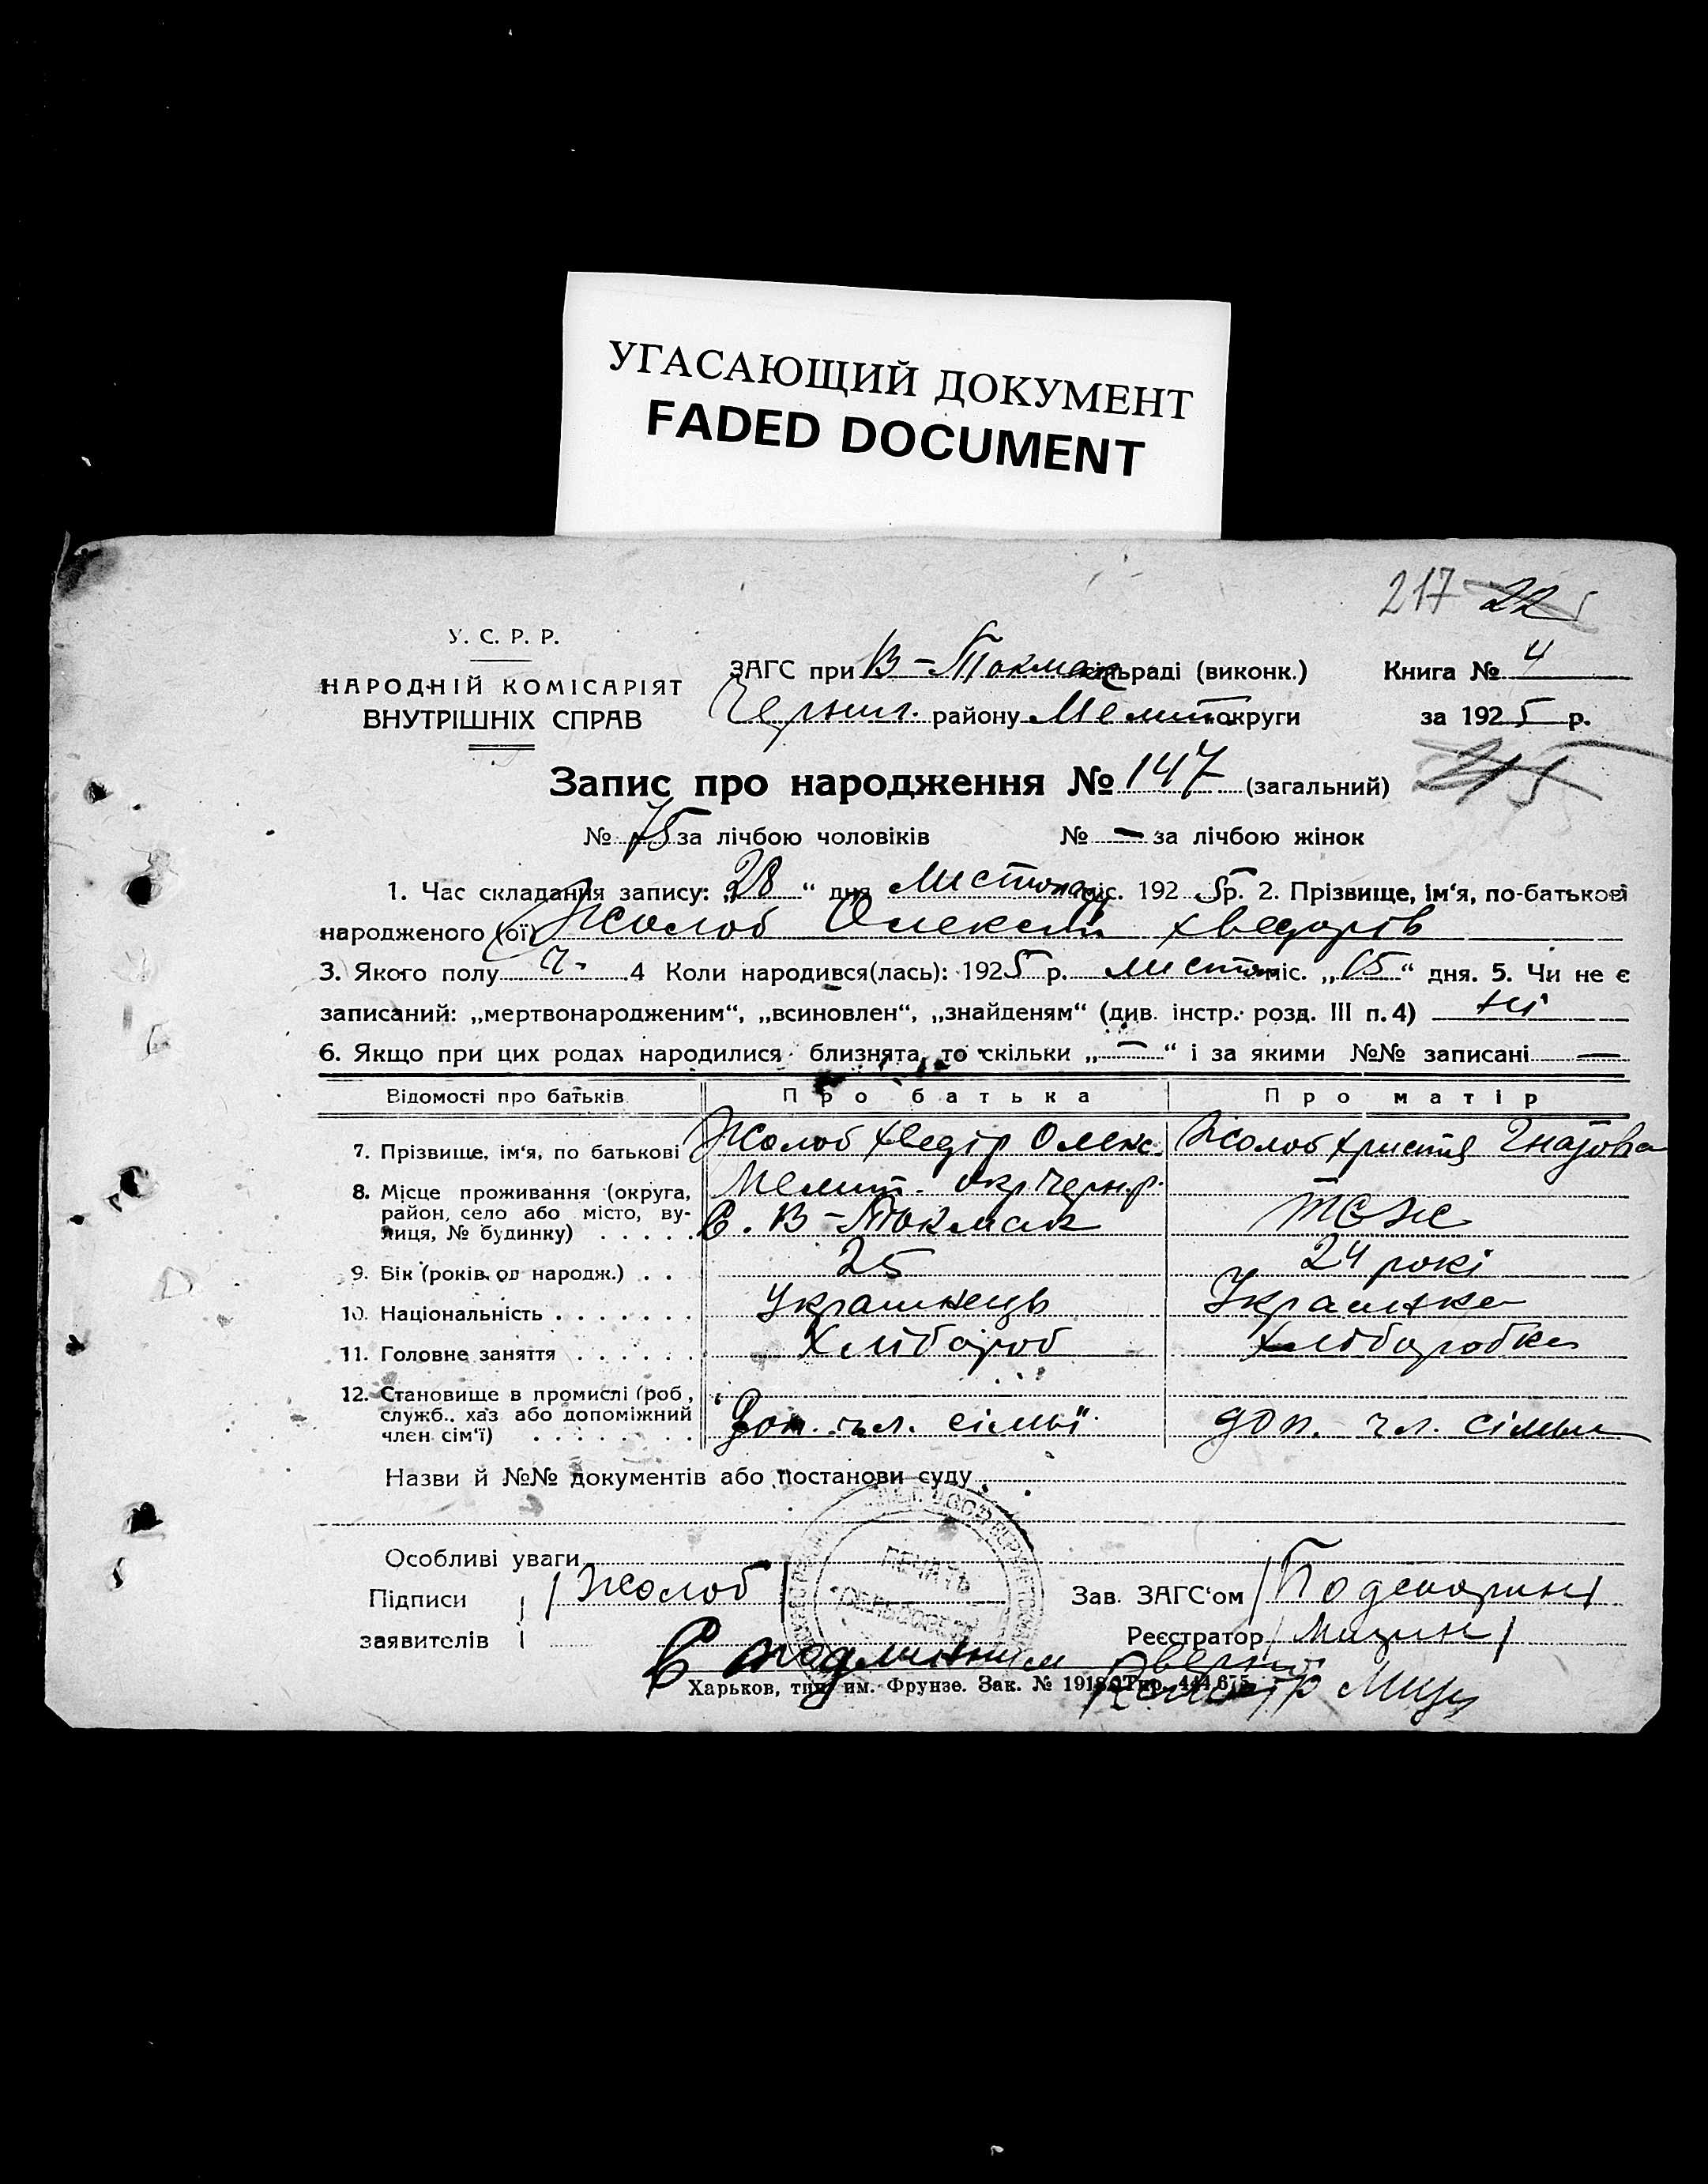 УГАСАЮЩИЙ ДОКУМЕНТ
FADED DOCUMENT
217 22
У. С. Р. Р.
НАРОДНІЙ КОМІСАРІЯТ
ВНУТРІШНІХ СПРАВ
ЗАГС при В-Токмак сільраді (виконк.) Книга № 4
Черниг. району Мелит округи за 1925 р.
Запис про народження № 147 (загальний) 215
№ 75 за лічбою чоловіків № — за лічбою жінок
1. Час складання запису: „28“ дня Листопад міс. 1925р. 2. Прізвище, ім‘я, по-батькові
народженого (ої) Жолоб Олексій Хведорів
3. Якого полу ч. 4 Коли народився(лась): 1925 р. листоп міс. „15“ дня. 5. Чи не є
записаний: „мертвонародженим“, „всиновлен“, „знайденям“ (див. інстр. розд. III п. 4) ні
6. Якщо при цих родах народилися близнята, то скільки „—“ і за якими №№ записані —
Відомості про батьків Про батька Про матір
7. Прізвище, ім‘я, по батькові Жолоб Хведір Олекс. Жолоб Христя Гнатова
8. Місце проживання (округа, Мелит. окр Черн.р.
район, село або місто, ву- С. В-Токмак тоже
лиця, № будинку) . . . . .
9. Вік (років од народж.) . . 25 24 рокі
10. Національність . . . . . . . Украинець Украинка
11. Головне заняття . . . . . . Хлібороб Хліборобка
12. Становище в промислі (роб.,
служб., хаз або допоміжний Доп. чл. сімьї. доп. чл. сімьи
член сім‘ї) . . . . . . . .
Назви й №№ документів або постанови суду
ПЕЧАТЬ
Особливі уваги
Підписи / Жолоб / Зав. ЗАГС‘ом / Подскарин /
заявителів Реєстратор / Мазин /
С подлинним верно
Харьков, тип. им. Фрунзе. Зак. №